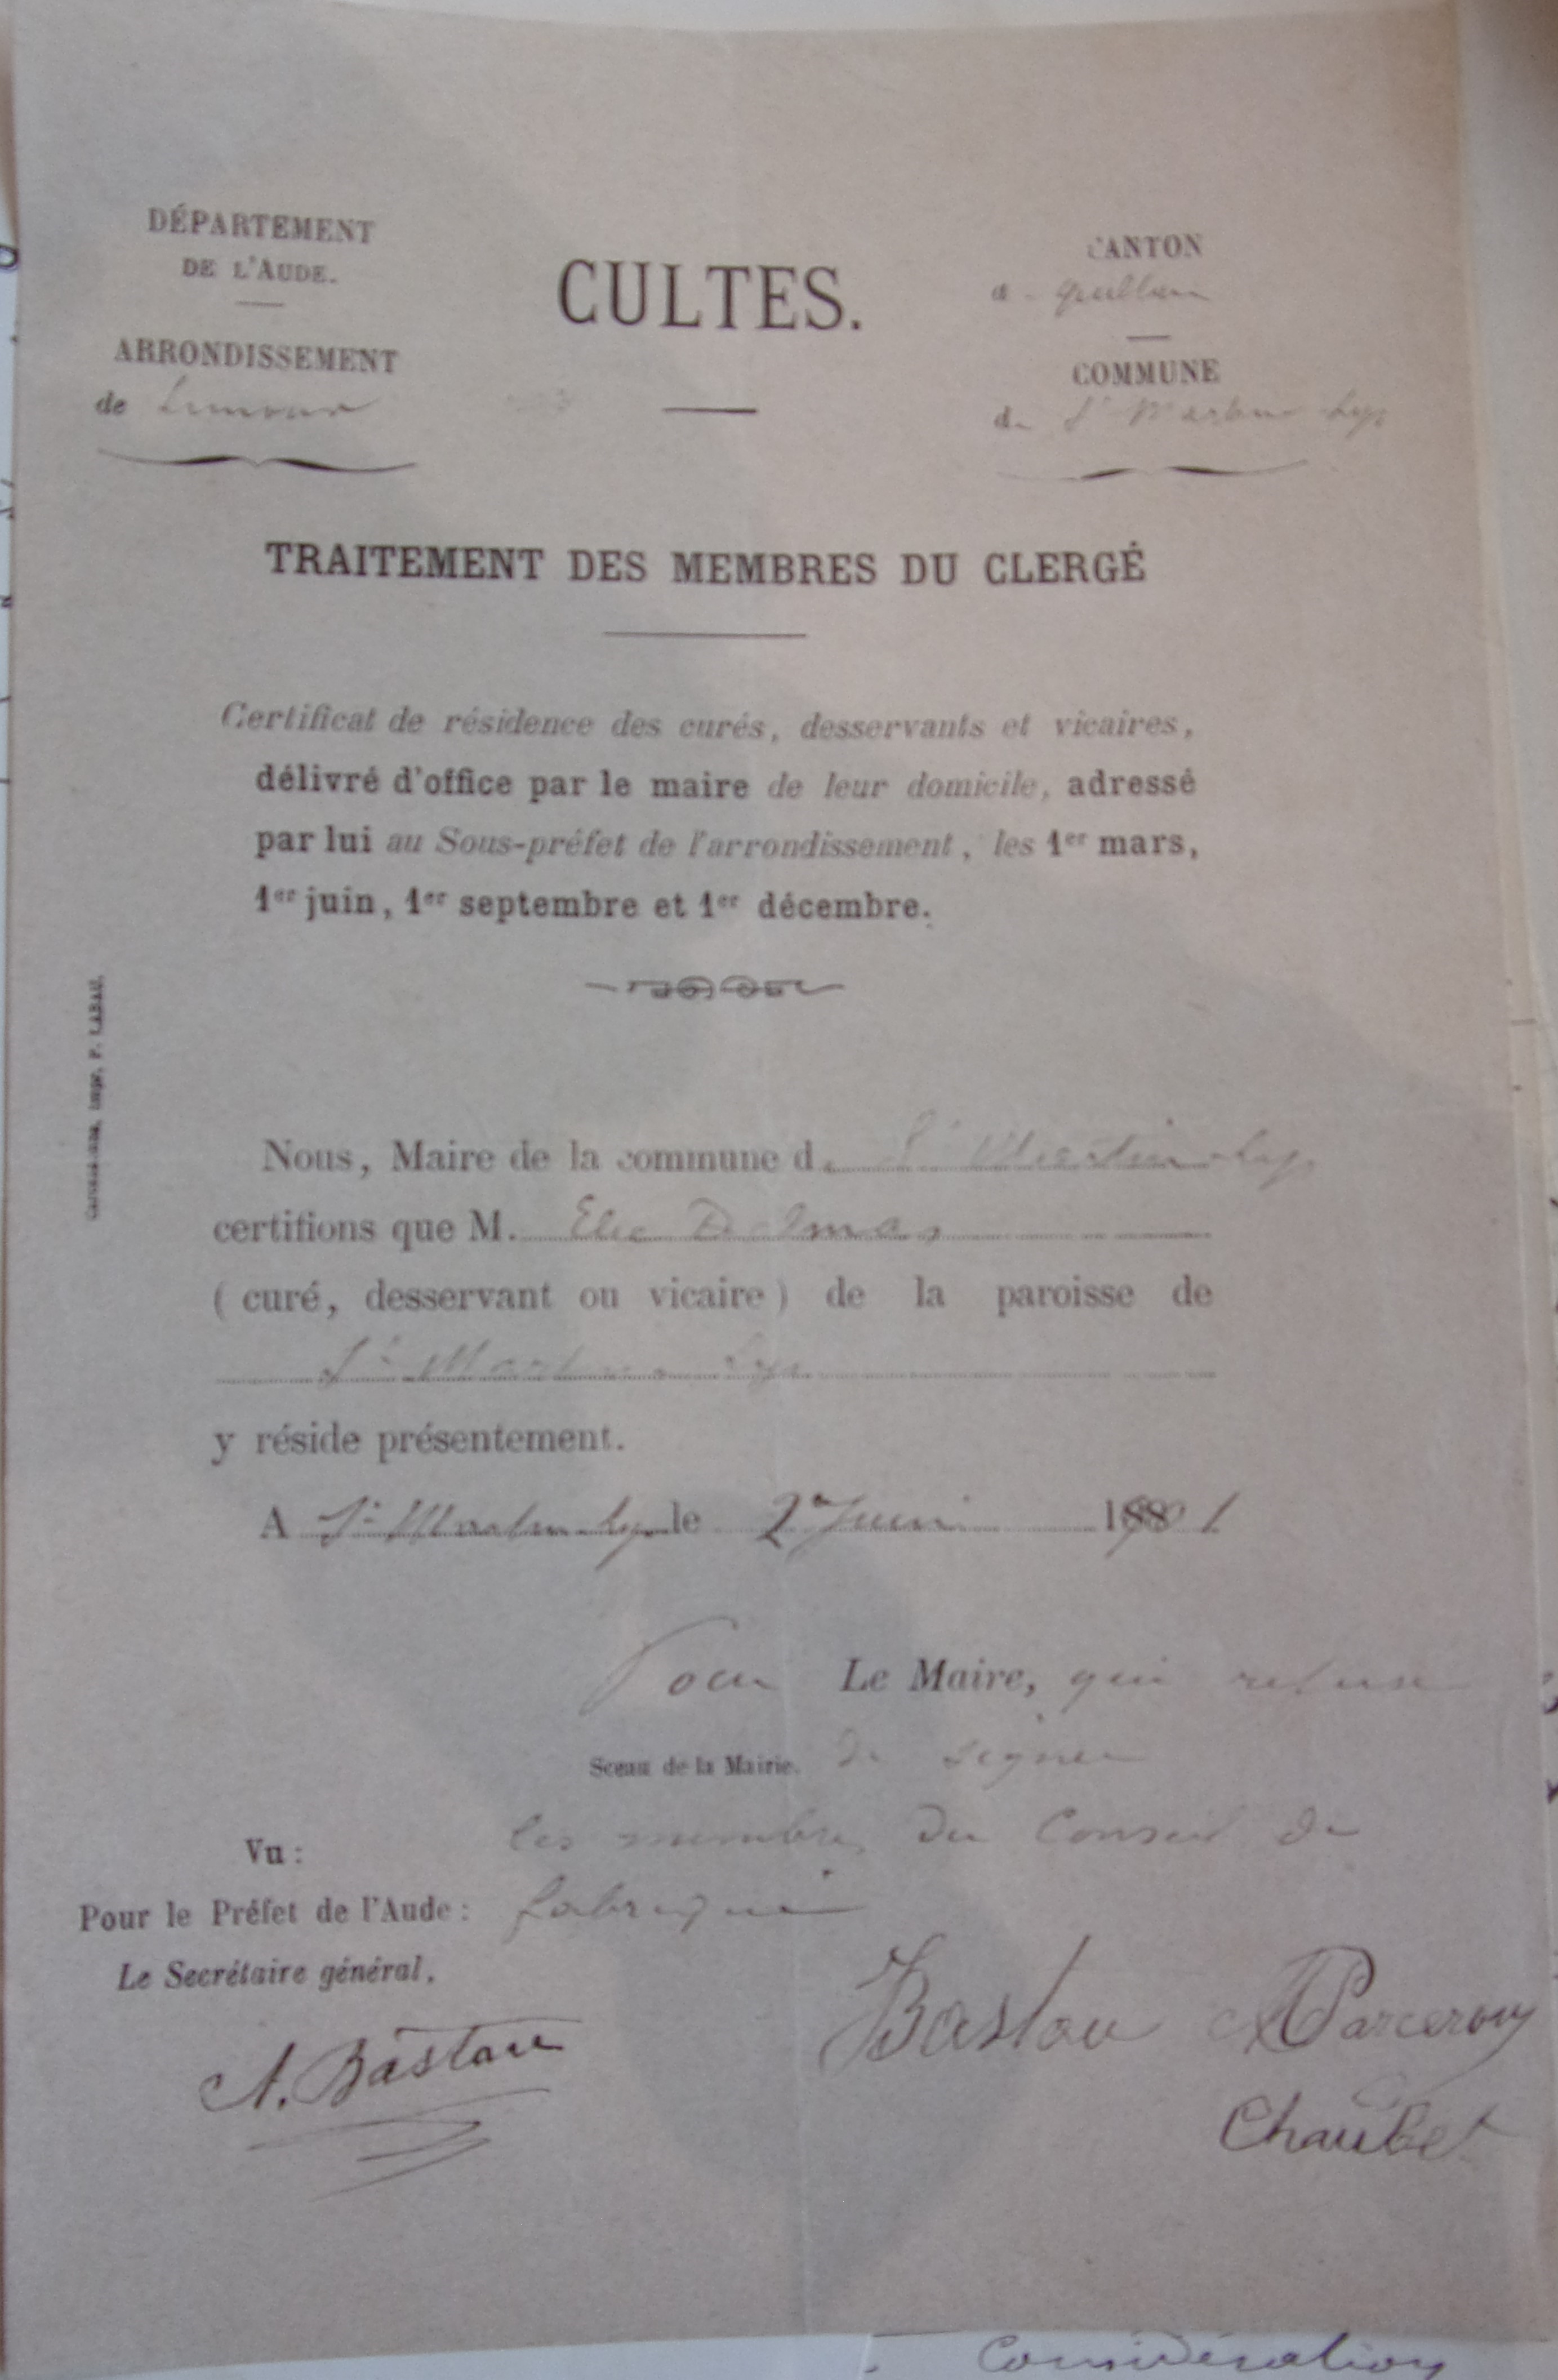 DÉPARTEMENT
DE L'AUDE.
ARRONDISSEMENT
de Limoux
CULTES.
CANTON
de Quillan
COMMUNE
de St Martin Lys
TRAITEMENT DES MEMBRES DU CLERGÉ
Certificat de résidence des curés, desservants et vicaires,
délivré d'office par le maire de leur domicile, adressé
par lui au Sous-préfet de l'arrondissement, les 1er mars,
1er juin, 1er septembre et 1er décembre.
Carcassonne, Impr. P. LABAU.
Nous, Maire de la commune de St Martin Lys
certifions que M. Elie Delmas
( curé, desservant ou vicaire ) de la paroisse de
St Martin Lys
y réside présentement.
A St Martin Lys le 2 Juin 1
Pour Le Maire, qui refuse
Sceau de la Mairie. de signer
les membres du Conseil de
fabrique
Vu :
Pour le Préfet de l'Aude :
Le Secrétaire général,
A. Bastou
Bastou Parcerou
Chaubet
Considération